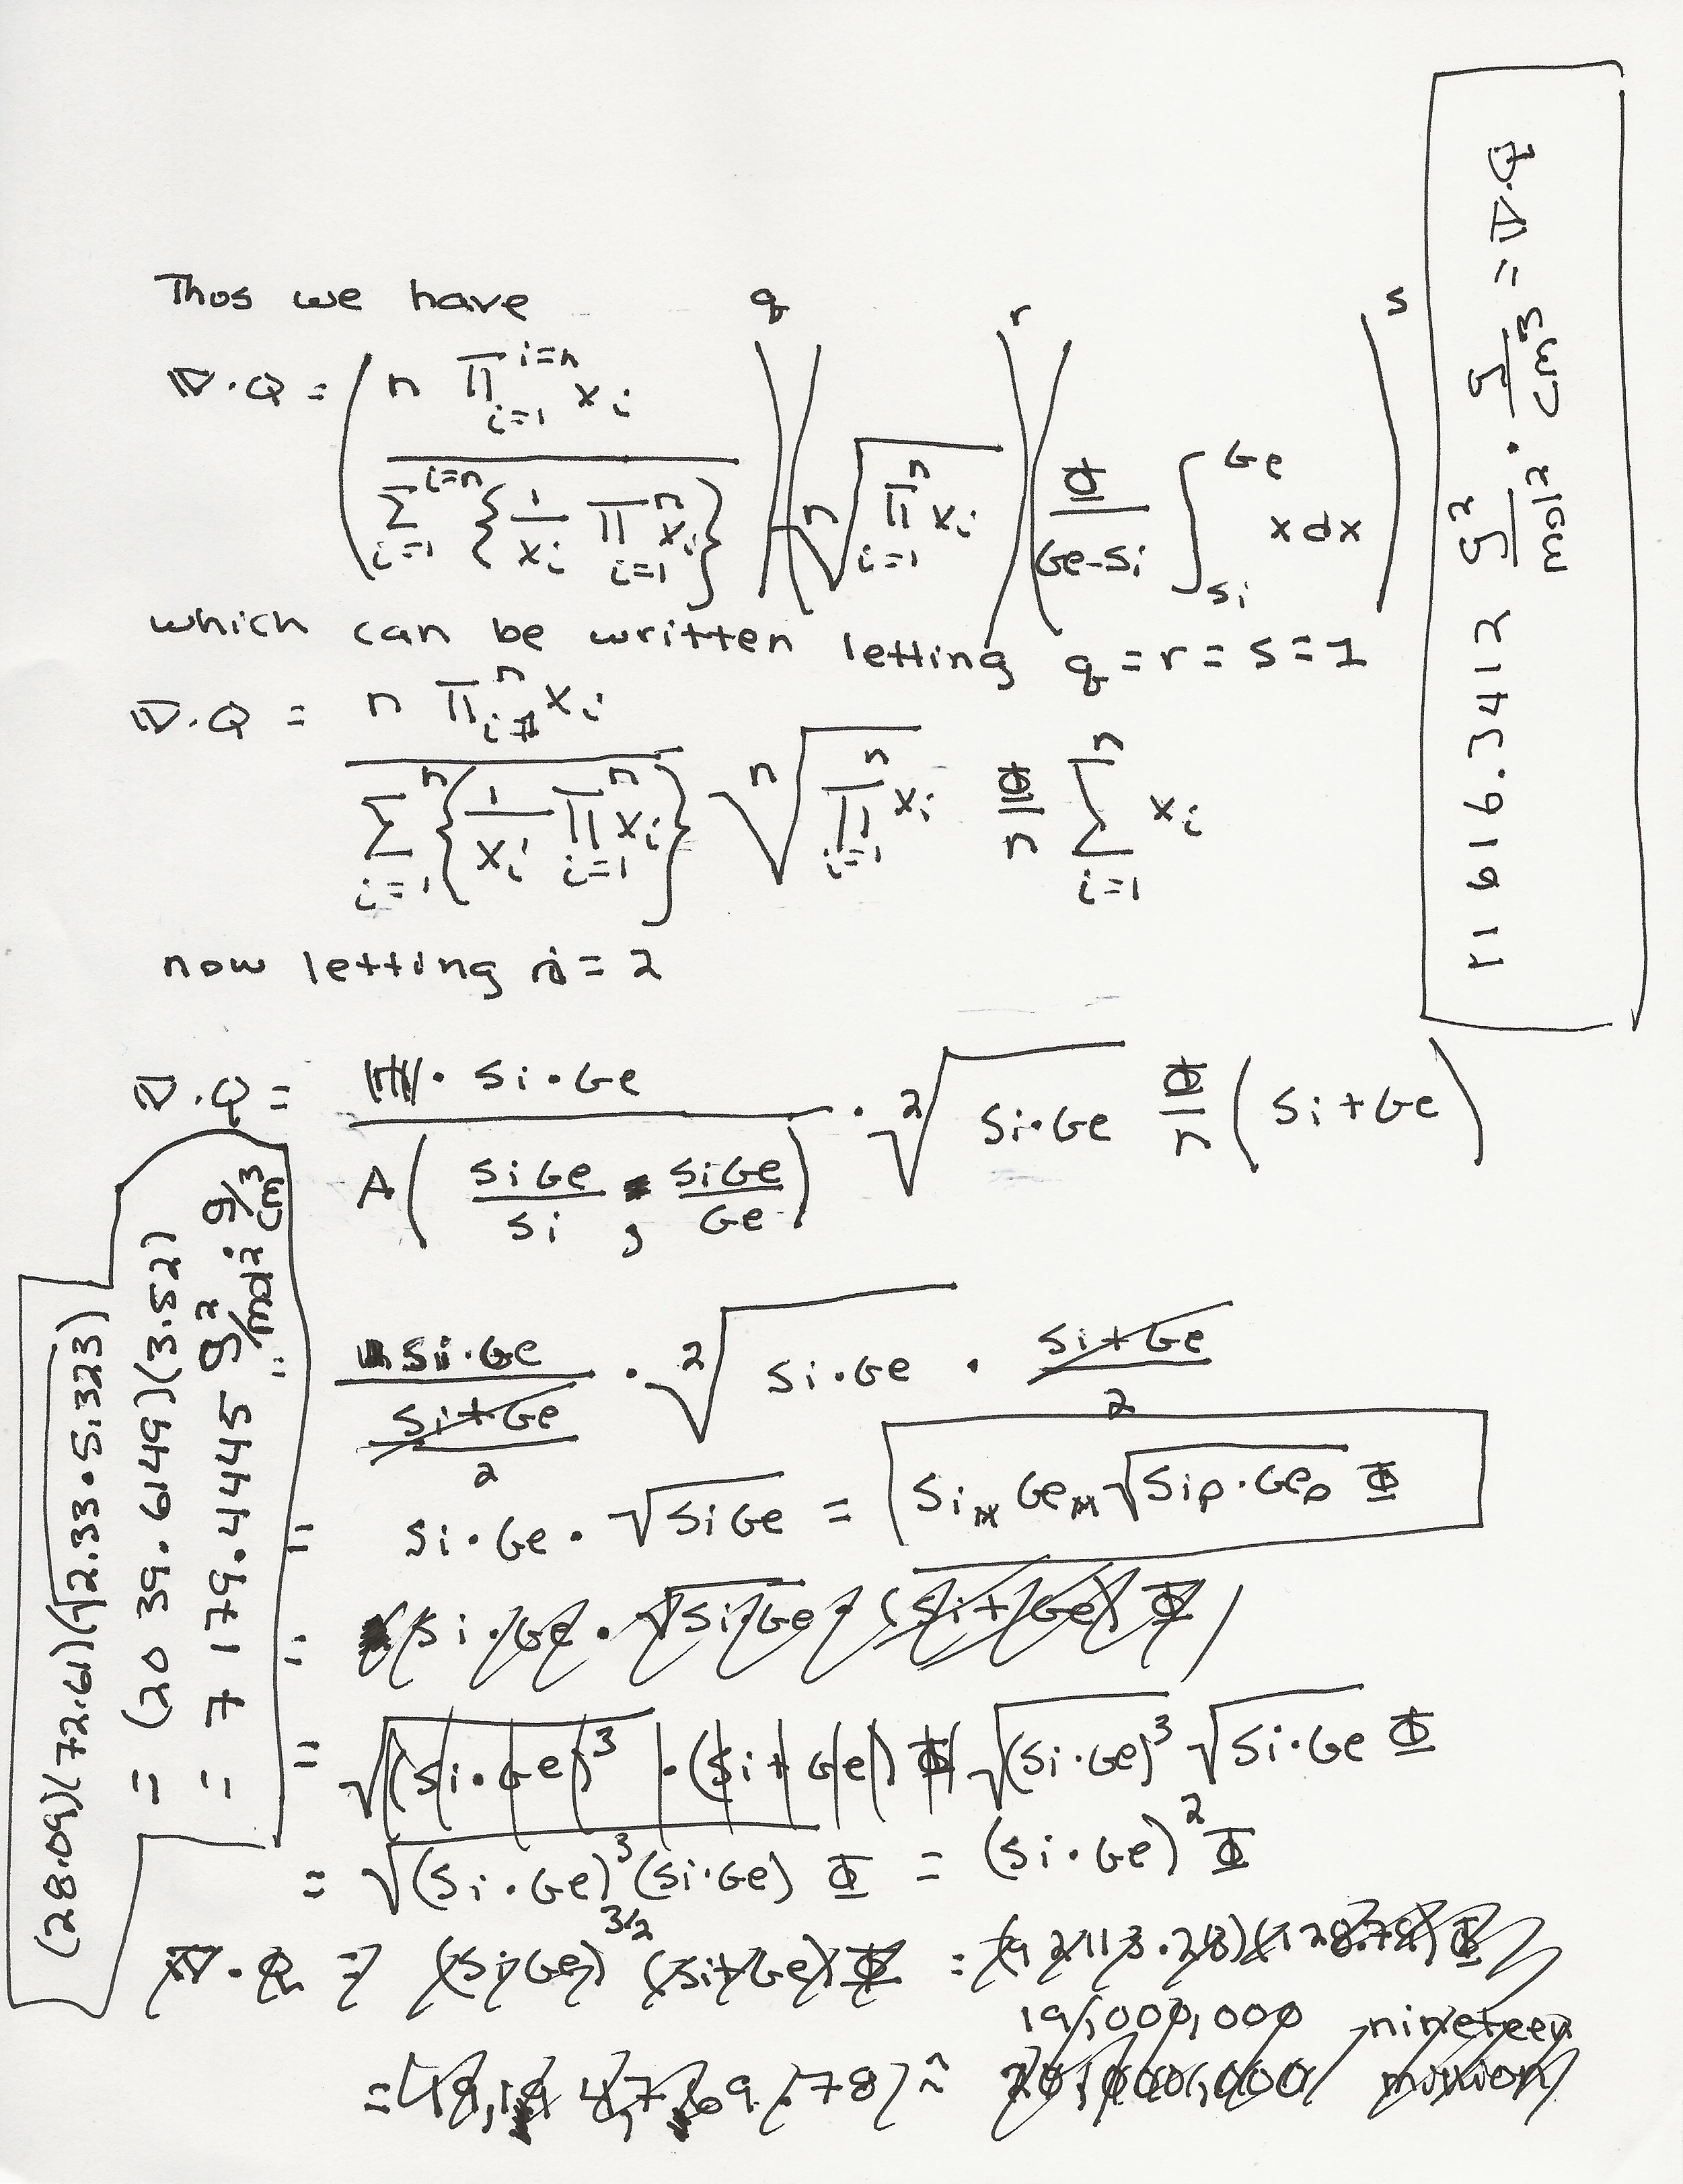 Thos we have
∇·Q = ( n ∏_{i=1}^{i=n} x_i / ∑_{i=1}^{i=n} { 1/x_i ∏_{i=1}^{n} x_i } )^q ( ⁿ√( ∏_{i=1}^{n} x_i ) )^r ( Φ/(Ge-Si) ∫_{Si}^{Ge} x dx )^s
which can be written letting q = r = s = 1
∇·Q = n ∏_{i=1}^{n} x_i / ∑_{i=1}^{n} { 1/x_i ∏_{i=1}^{n} x_i } ⁿ√( ∏_{i=1}^{n} x_i ) Φ/n ∑_{i=1}^{n} x_i
now letting n = 2
∇·Q = · Si·Ge / A( SiGe/Si , SiGe/Ge ) · ²√( Si·Ge ) Φ/n ( Si + Ge )
= Si·Ge / ( (Si+Ge)/2 ) · ²√( Si·Ge ) · (Si+Ge)/2
= Si·Ge · √(SiGe) = Si_M Ge_M √( Si_ρ · Ge_ρ ) Φ
= (Si·Ge · √(Si·Ge) · (Si+Ge) Φ)
= √( (Si·Ge)³ ) · (Si + Ge) Φ √( (Si·Ge)³ ) √( Si·Ge ) Φ
= √( (Si·Ge)³ (Si·Ge) ) Φ = (Si·Ge)² Φ
∇·Q = (SiGe)^{3/2} (Si+Ge) Φ = (92113.28)(128.78) Φ
19,000,000 nineteen
≈ 20,000,000 million
(28.09)(72.61)(√(2.33·5.323))
= (2039.6149)(3.52)
= 7179.4445 g²/mol² · g/cm³ =
11616.3412 g²/mol² · g/cm³ = ∇·Q